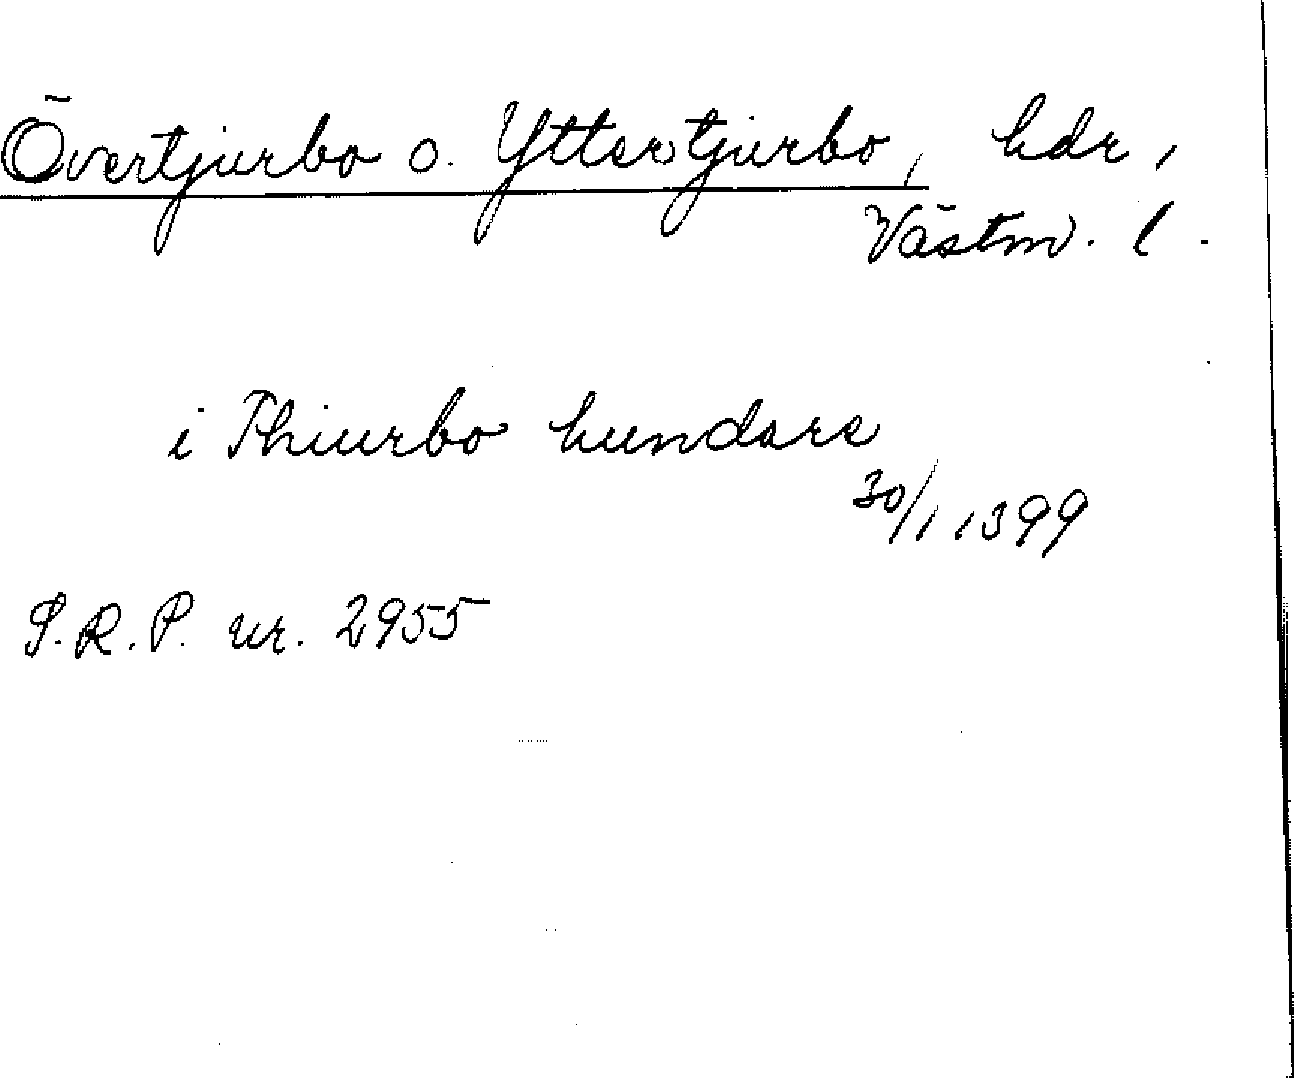 Övertjurbo o. Yttertjurbo, hdr,
Västm. l.
i Thiurbo hundare
30/1 1399
S.R.P. nr. 2955